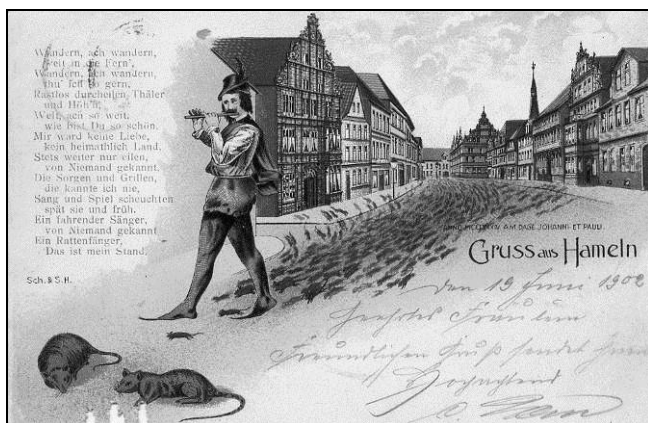 Wandern, ach wandern,
weit in die Fern',
Wandern, ach wandern,
thu' ich so gern,
Rastlos durcheilen, Thäler
und Höh'n,
Welt, ach so weit,
wie bist Du so schön.
Mir ward keine Liebe,
kein heimathlich Land.
Stets weiter nur eilen,
von Niemand gekannt.
Die Sorgen und Grillen,
die kannte ich nie,
Sang und Spiel scheuchten
spät sie und früh.
Ein fahrender Sänger,
von Niemand gekannt
Ein Rattenfänger,
Das ist mein Stand.
Sch. & S. H.
AM DAGE JOHANNIS ET PAULI
Gruss aus Hameln
den 19 Juni 1902
Geehrtes Fräulein
Freundlichen Gruß sendet Ihnen
Hochachtend